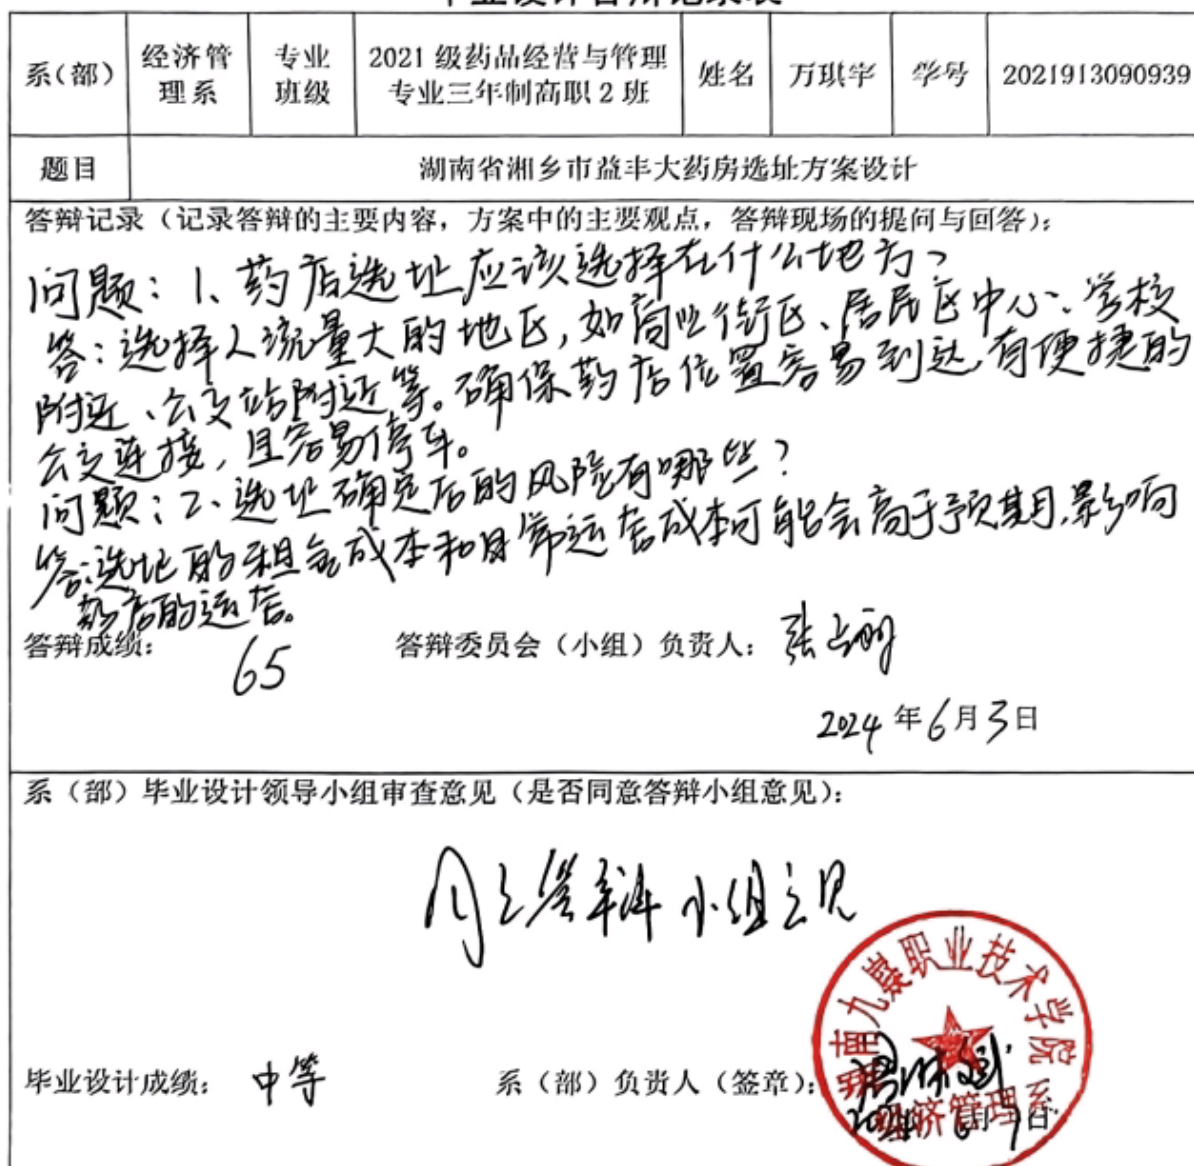 毕业设计答辩记录表
系(部) 经济管理系 专业班级 2021级药品经营与管理专业三年制高职2班 姓名 万琪宇 学号 2021913090939
题目 湖南省湘乡市益丰大药房选址方案设计
答辩记录（记录答辩的主要内容，方案中的主要观点，答辩现场的提问与回答）：
问题：1、药店选址应该选择在什么地方？
答：选择人流量大的地区，如商业街区、居民区中心、学校
附近、公交站附近等。确保药店位置容易到达，有便捷的
公交连接，且容易停车。
问题：2、选址确定后的风险有哪些？
答：选址的租金成本和日常运营成本可能会高于预期，影响
药店的运营。
答辩成绩： 65 答辩委员会（小组）负责人： 张
2024 年 6 月 3 日
系（部）毕业设计领导小组审查意见（是否同意答辩小组意见）：
同意答辩小组意见
湖南九嶷职业技术学院
毕业设计成绩： 中等 系（部）负责人（签章）：
经济管理系